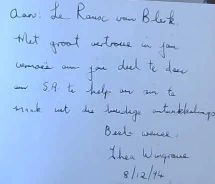 Aan: Le Roux van Blerk.
Met groot vertroue in jou
vermoë om jou deel te doen
om S.A. te help en om te
maak met die huidige ontwikkelings
Beste wense.
Rhea
8/12/94